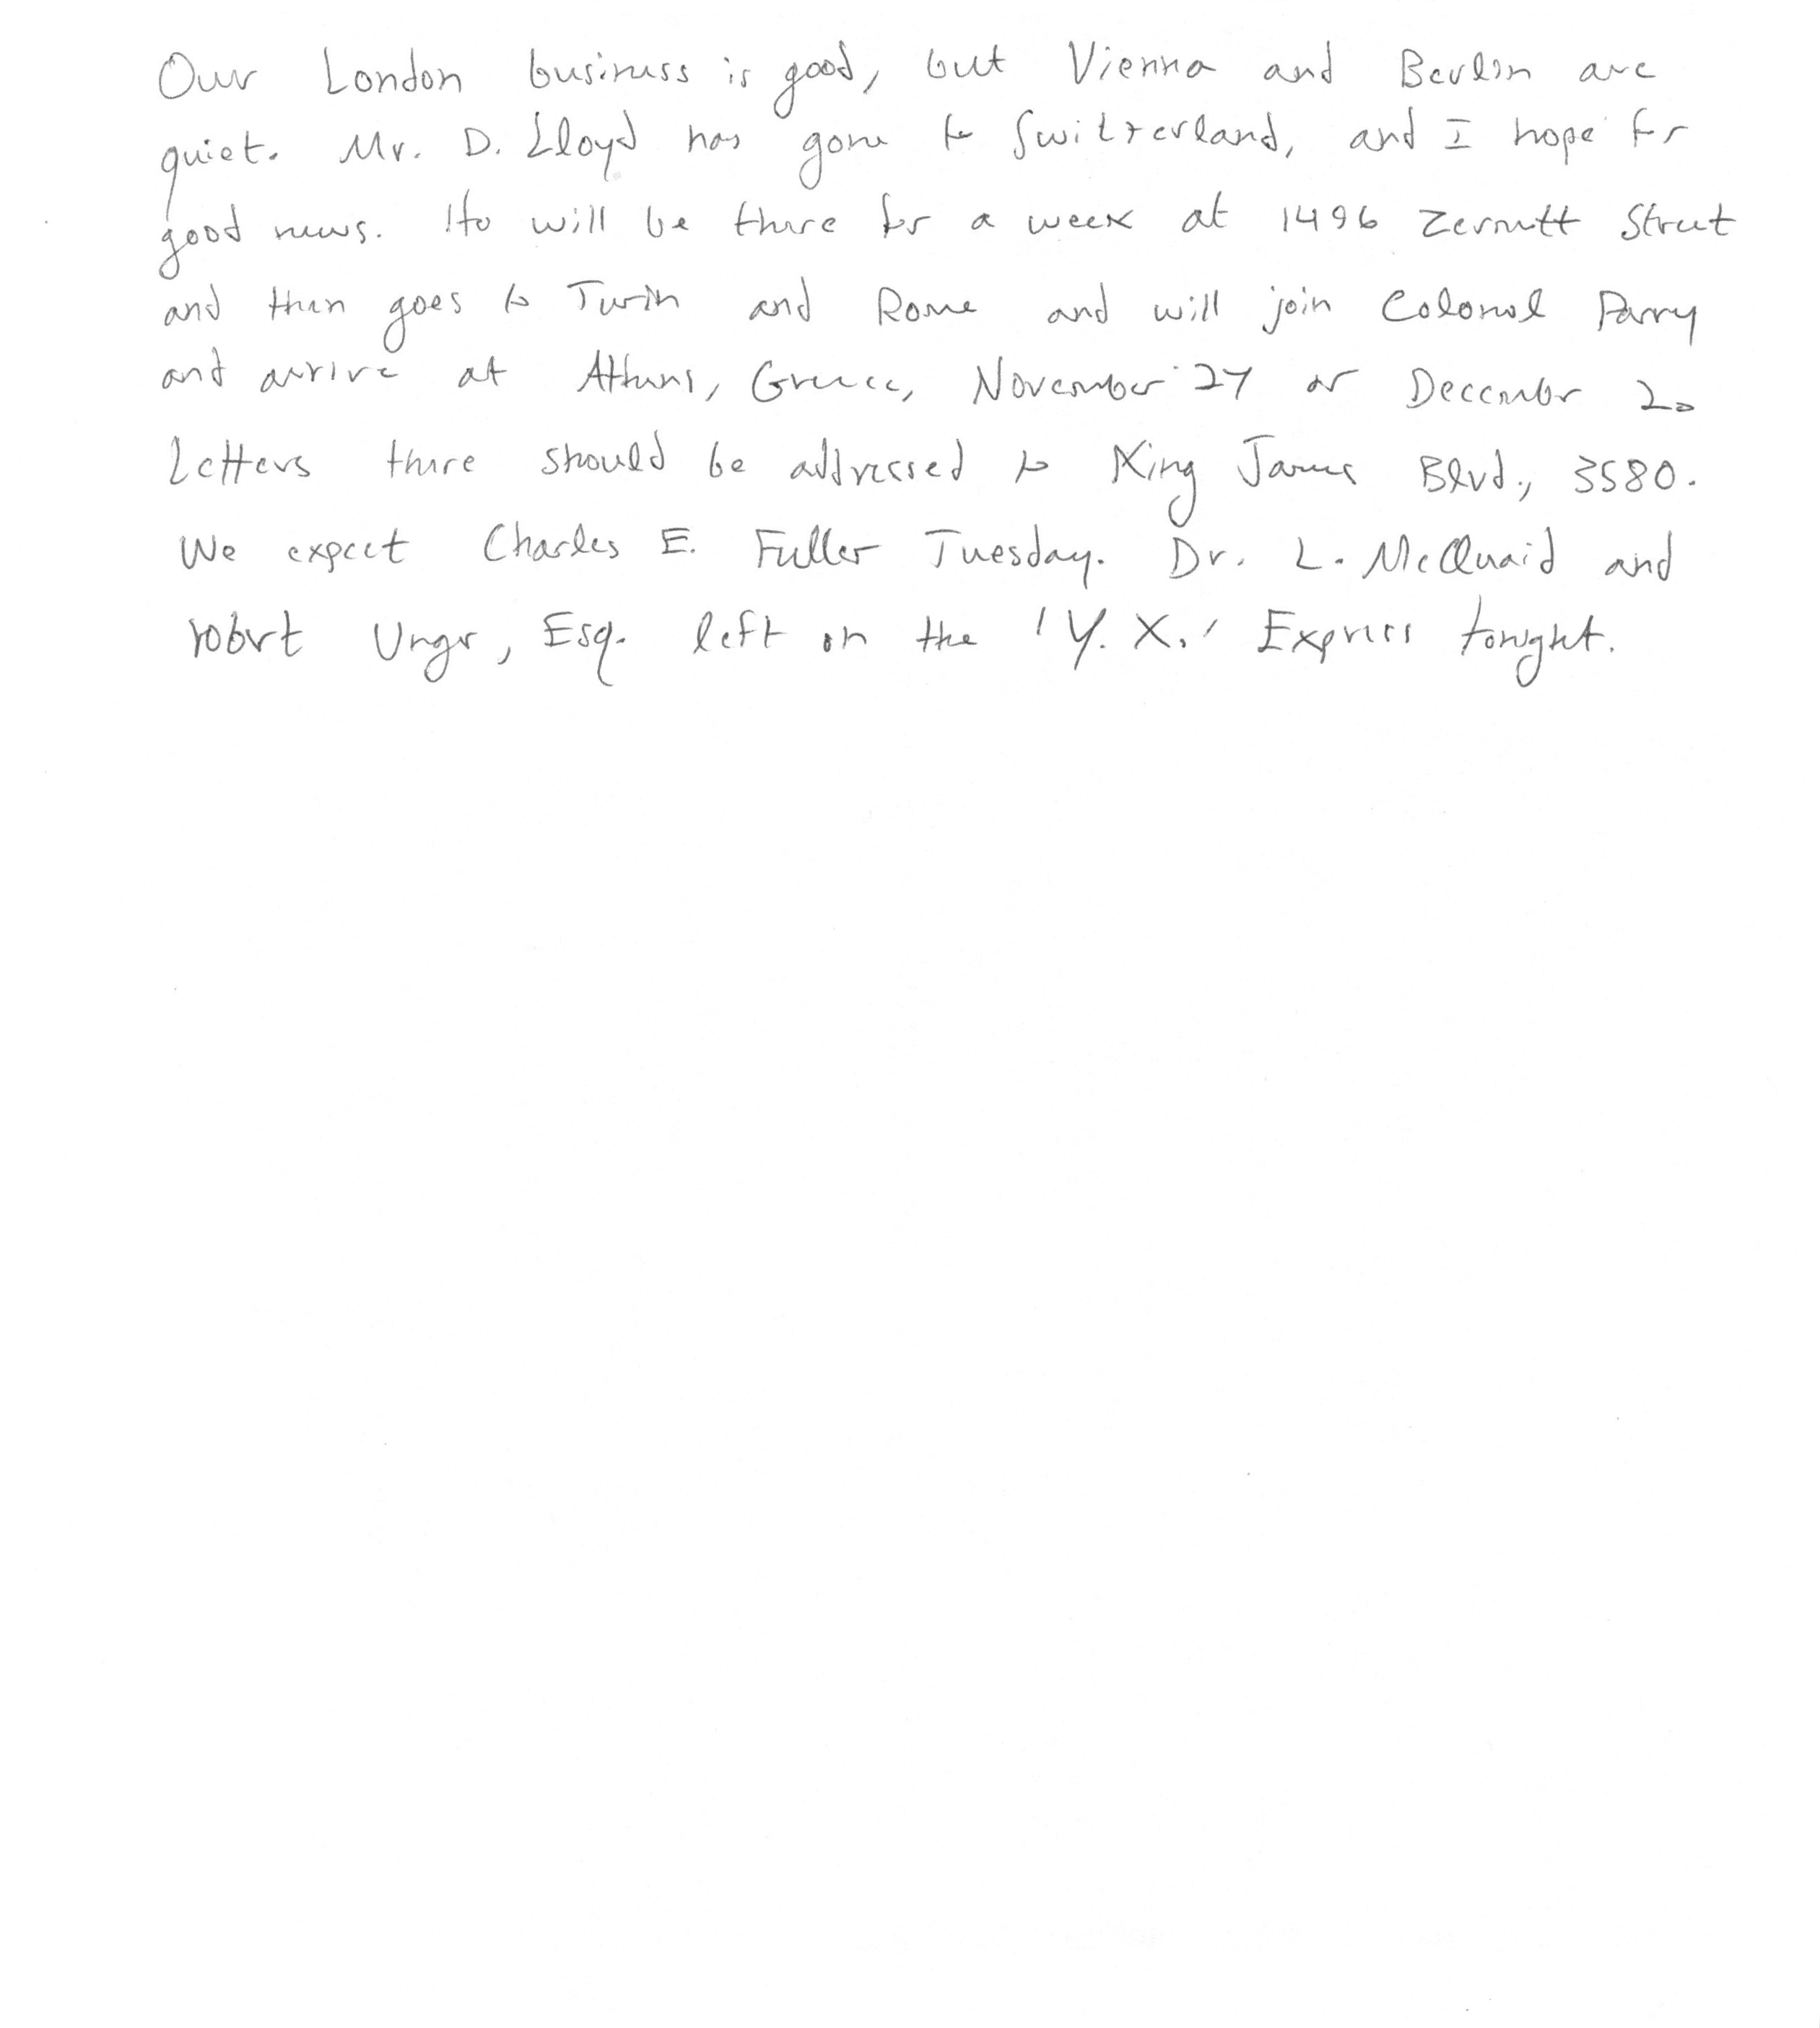 Our London business is good, but Vienna and Berlin are
quiet. Mr. D. Lloyd has gone to Switzerland, and I hope for
good news. He will be there for a week at 1496 Zermott Street
and then goes to Turin and Rome and will join Colonel Parry
and arrive at Athens, Greece, November 27 or December 2.
Letters there should be addressed to King James Blvd., 3580.
We expect Charles E. Fuller Tuesday. Dr. L. McQuaid and
robert Unger, Esq. left on the 'Y. X.' Express tonight.